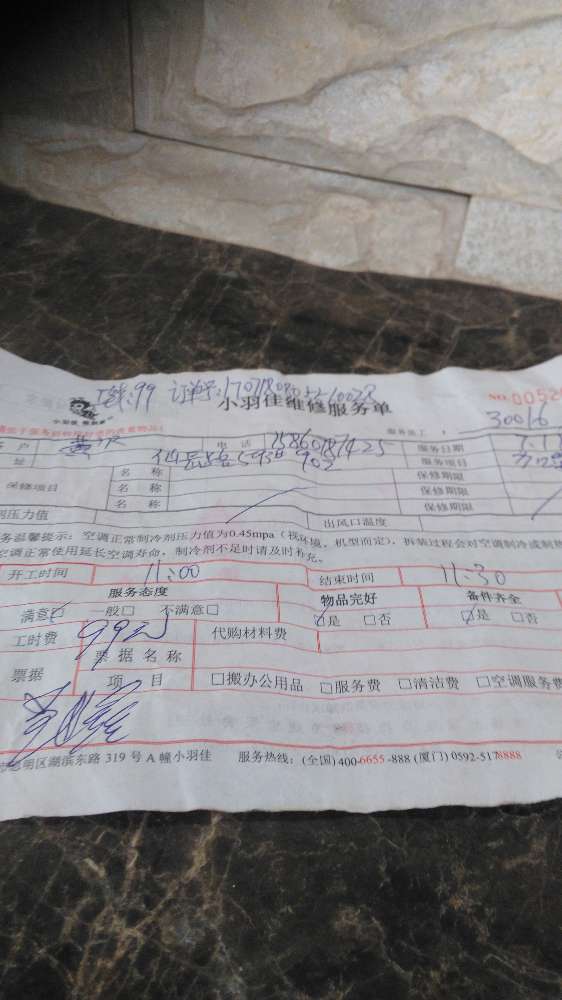 工钱:99 订单号:
小羽佳维修服务单 NO.0052
服务员工 30016
户 黄 电话 15860187425 服务日期
址 仙岳路 服务项目
保修项目 名称 保修期限
名称 保修期限
名称 保修期限
剂压力值 出风口温度
务温馨提示:空调正常制冷剂压力值为0.45mpa(视环境、机型而定),拆装过程会对空调制冷或制热
空调正常使用延长空调寿命,制冷剂不足时请及时补充。
开工时间 11:00 结束时间 11:30
服务态度 物品完好 备件齐全
满意☑ 一般□ 不满意□ ☑是 □否 ☑是 □否
工时费 99元 代购材料费
票据 票据名称
项目 □搬办公用品 □服务费 □清洁费 □空调服务费
思明区湖滨东路 319 号 A 幢小羽佳 服务热线:(全国)400-6655-888 (厦门) 0592-5178888